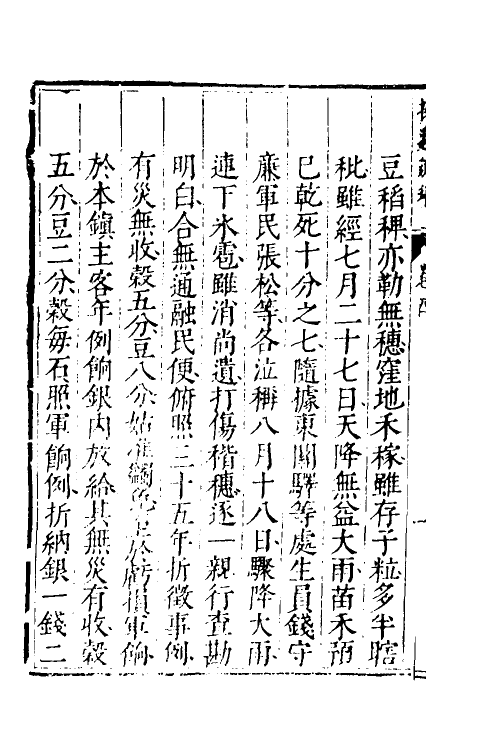 豆稻稗亦勒無穗窪地禾稼雖存子粒多半瞎
秕雖經七月二十七日天降無益大雨苗禾預
已乾死十分之七隨據東關驛等處生員錢守
廉軍民張松等各泣稱八月十八日驟降大雨
連下氷雹雖消尚遺打傷稭穗逐一親行查勘
明白合無通融民便俯照三十五年折徵事例
有災無收穀五分豆八分姑准蠲免至於虧損軍餉
於本鎮主客年例餉銀內放給其無災有收穀
五分豆二分穀每石照軍餉例折納銀一錢二